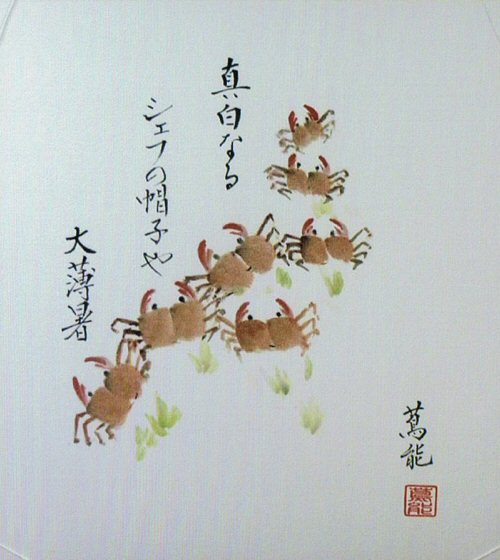 真白なる
シェフの帽子や
大薄暑
蔦能